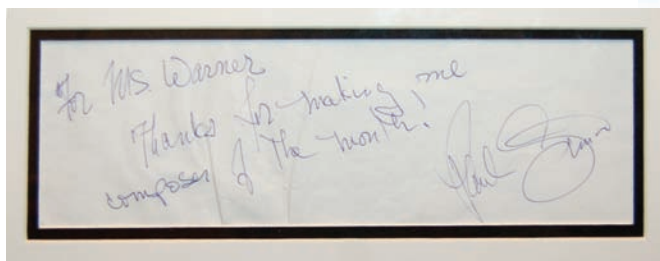 For MS. Warner
Thanks for making me
composer of the month!
Paul Simon